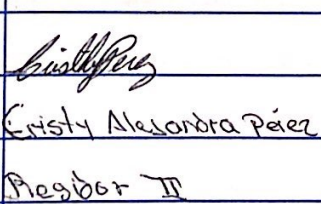 Cristy Perez
Cristy Alejandra Pérez
Regidor II